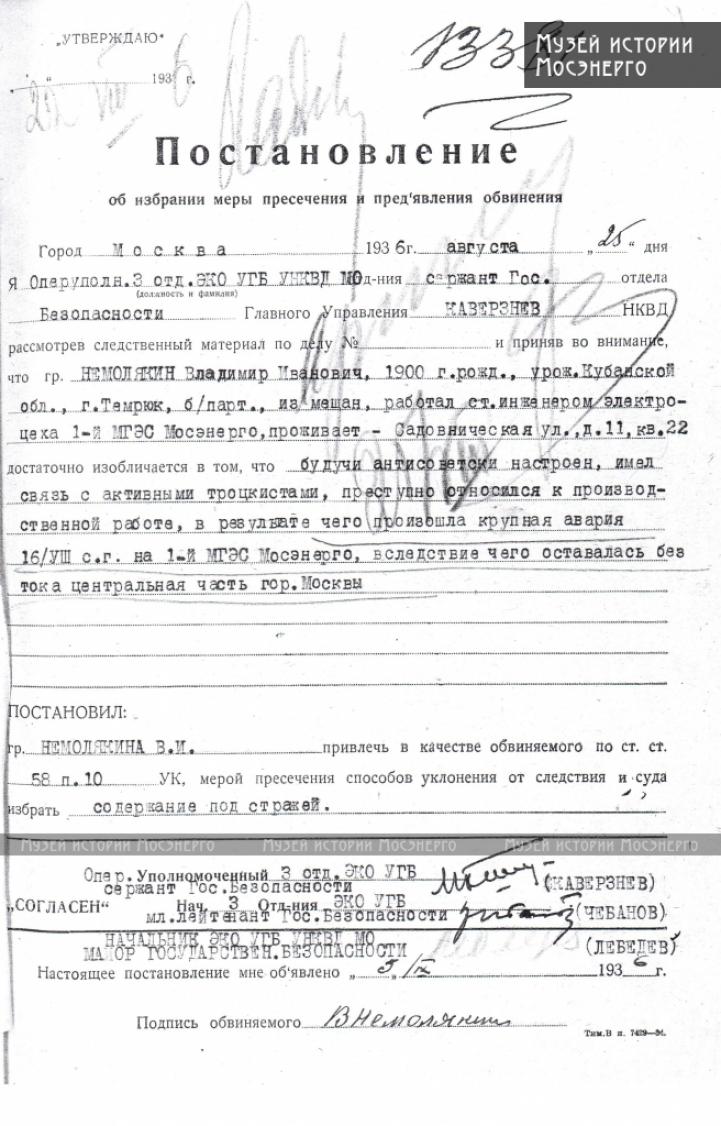 „УТВЕРЖДАЮ“
„ “ 1936 г.
133
Музей истории
Мосэнерго
Постановление
об избрании меры пресечения и пред'явления обвинения
Город Москва 1936г. августа „25“ дня
Я Оперуполн.3 отд.ЭКО УГБ УНКВД МО д-ния сержант Гос. отдела
(должность и фамилия)
Безопасности Главного Управления КАВЕРЗНЕВ НКВД
рассмотрев следственный материал по делу № и приняв во внимание,
что гр. НЕМОЛЯКИН Владимир Иванович, 1900 г.рожд., урож.Кубанской
обл., г.Темрюк, б/парт., из мещан, работал ст.инженером электро-
цеха 1-й МГЭС Мосэнерго,проживает - Садовническая ул.,д.11,кв.22
достаточно изобличается в том, что будучи антисоветски настроен, имел
связь с активными троцкистами, преступно относился к производ-
ственной работе, в результате чего произошла крупная авария
16/УШ с.г. на 1-й МГЭС Мосэнерго, вследствие чего оставалась без
тока центральная часть гор.Москвы
ПОСТАНОВИЛ:
гр. НЕМОЛЯКИНА В.И. привлечь в качестве обвиняемого по ст. ст.
58 п.10 УК, мерой пресечения способов уклонения от следствия и суда
избрать содержание под стражей.
Музей истории Мосэнерго Музей истории Мосэнерго Музей истории Мосэнерго
Опер.Уполномоченный 3 отд.ЭКО УГБ
сержант Гос.Безопасности (КАВЕРЗНЕВ)
„СОГЛАСЕН“ Нач. 3 Отд-ния ЭКО УГБ
мл.лейтенант Гос.Безопасности (ЧЕБАНОВ)
НАЧАЛЬНИК ЭКО УГБ УНКВД МО
МАЙОР ГОСУДАРСТВЕН.БЕЗОПАСНОСТИ (ЛЕБЕДЕВ)
Настоящее постановление мне об'явлено „5“/IX 1936 г.
Подпись обвиняемого ВНемолякин
Тим.В п. 7429—34.